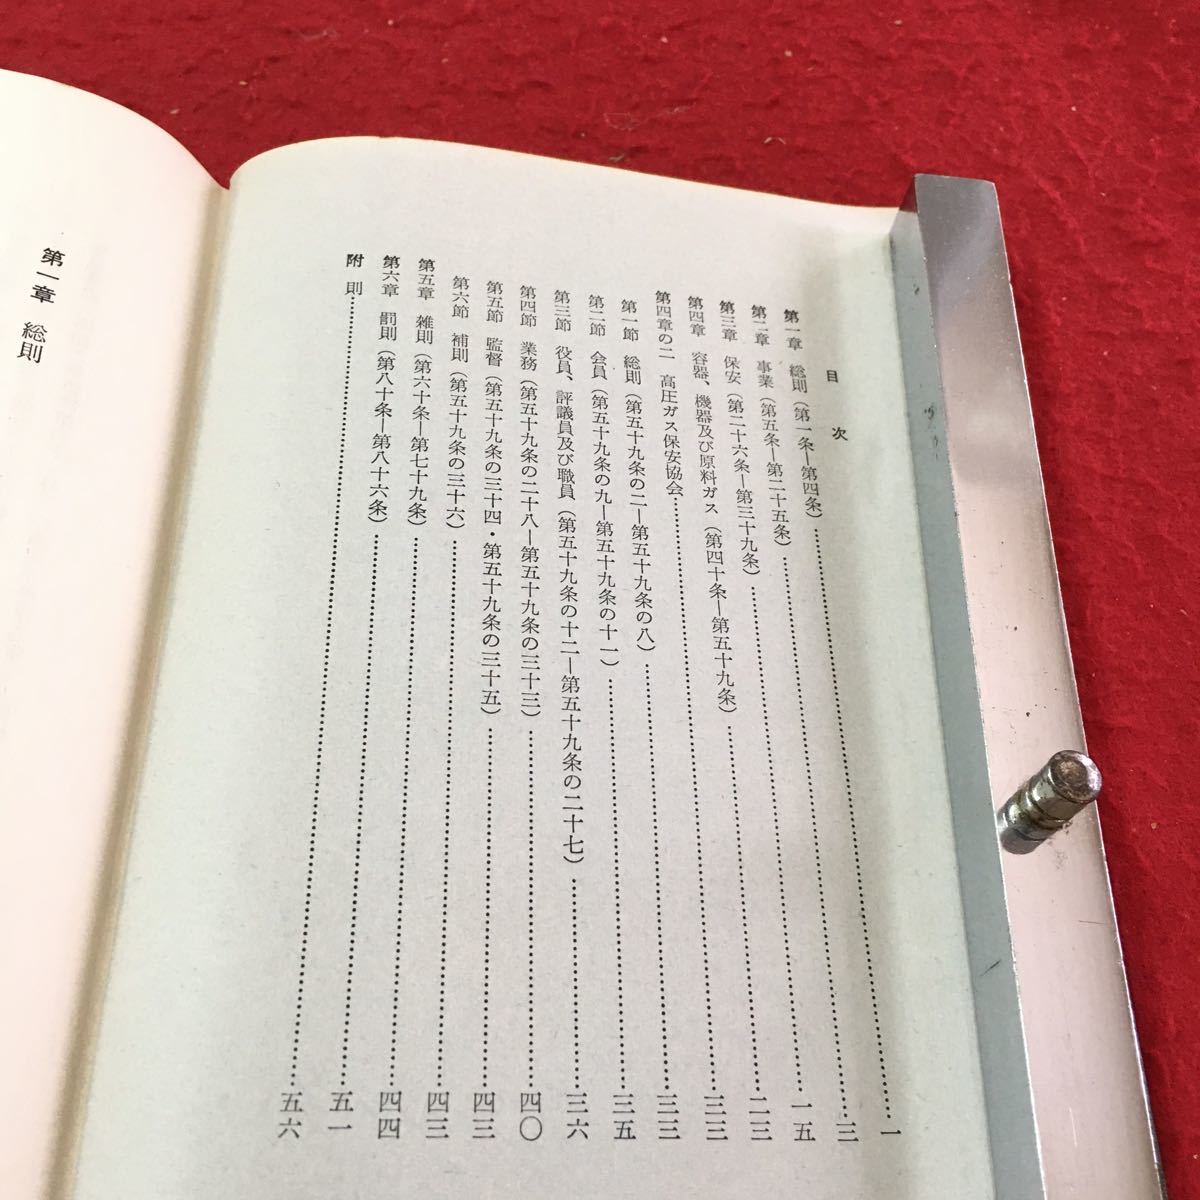 目次
第一章 総則（第一条―第四条）……一
第二章 事業（第五条―第二十五条）……三
第三章 保安（第二十六条―第三十九条）……一五
第四章 容器、機器及び原料ガス（第四十条―第五十九条）……二三
第四章の二 高圧ガス保安協会……三三
第一節 総則（第五十九条の二―第五十九条の八）……三三
第二節 会員（第五十九条の九―第五十九条の十一）……三五
第三節 役員、評議員及び職員（第五十九条の十二―第五十九条の二十七）……三六
第四節 業務（第五十九条の二十八―第五十九条の三十三）……四〇
第五節 監督（第五十九条の三十四・第五十九条の三十五）……四三
第六節 補則（第五十九条の三十六）……四三
第五章 雑則（第六十条―第七十九条）……四四
第六章 罰則（第八十条―第八十六条）……五一
附則……五六
第一章 総則